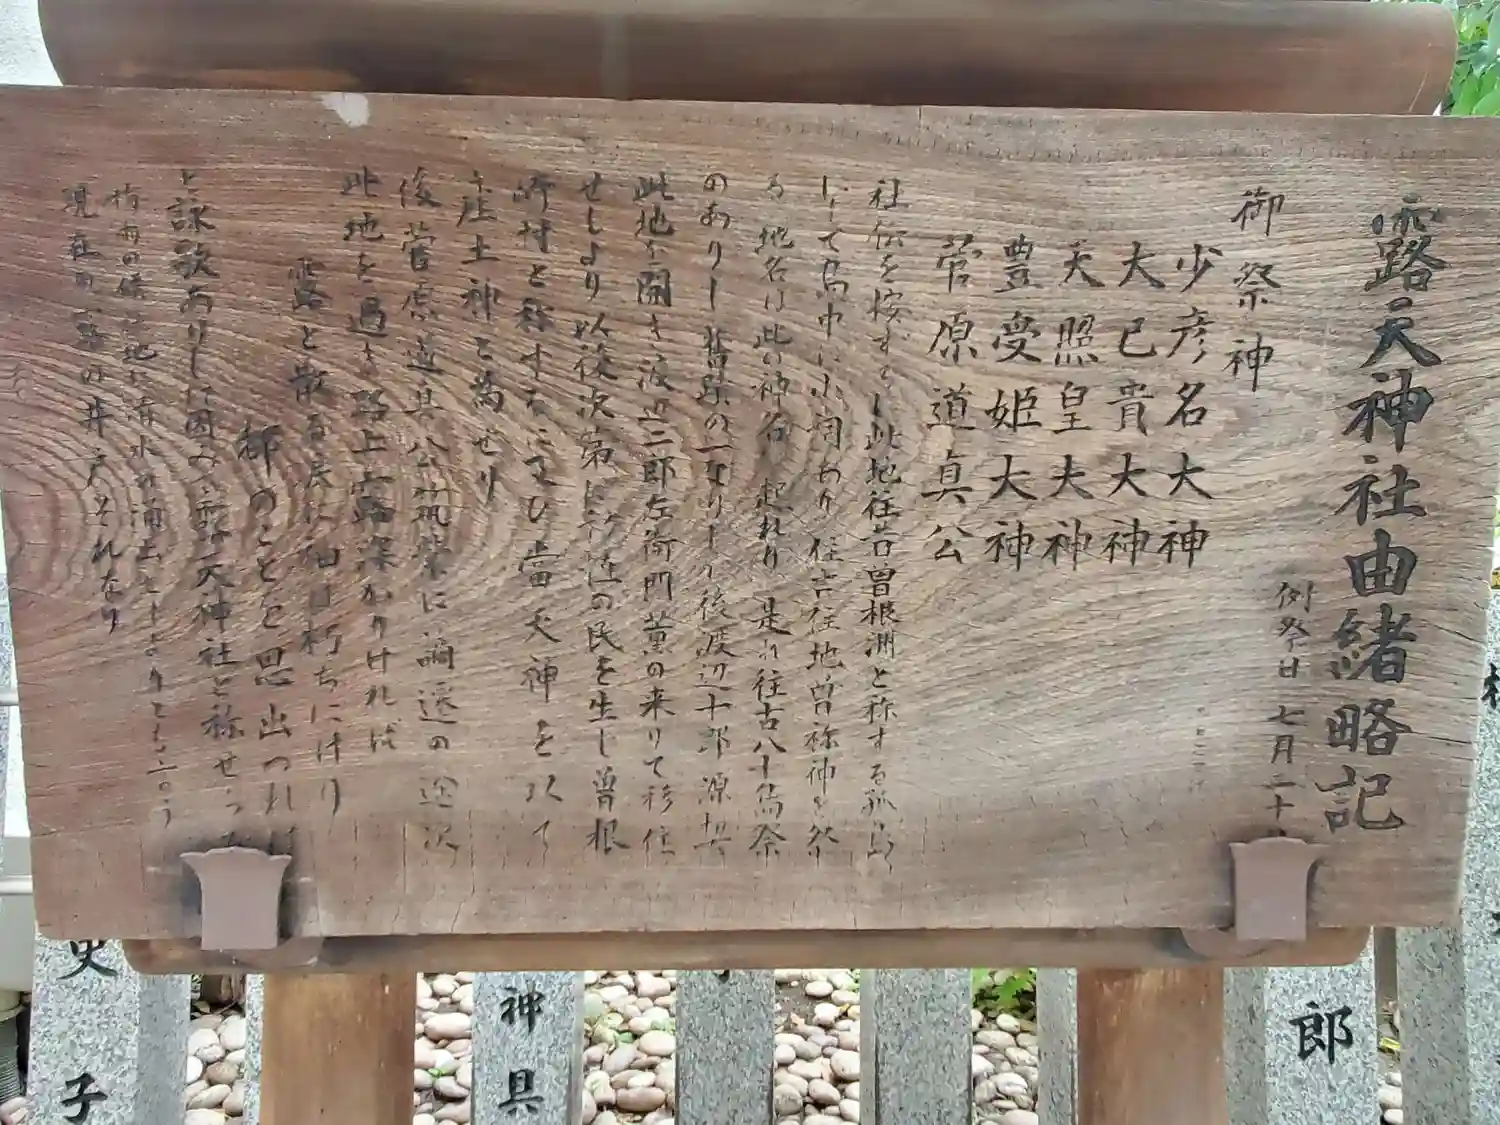 露天神社由緒略記
例祭日 七月二十
御祭神
少彦名大神
大己貴大神
天照皇大神
豊受姫大神
菅原道真公
社伝を按ずるに此地往昔曽根洲と称する孤島
にして島中に小祠あり住吉住地曽祢神を祭
る地名は此の神名に起れり是れ往古八十島祭
のありし旧跡の一なりし後渡辺十郎源契
此地を開き渡辺二郎左衛門薫の来りて移住
せしより以後次第に諸国の民を生し曽根
崎村と称するに及び当天神を以て
産土神と為せり
後菅原道真公筑紫に謫遷の途次
此地を過き路上露深かりければ
露と散る涙に袖は朽ちにけり
都のことを思出づれば
と詠歌ありしに因み露天神社と称せ
梅雨の候
現在の
の井戸それなり
史
子
神
具
郎